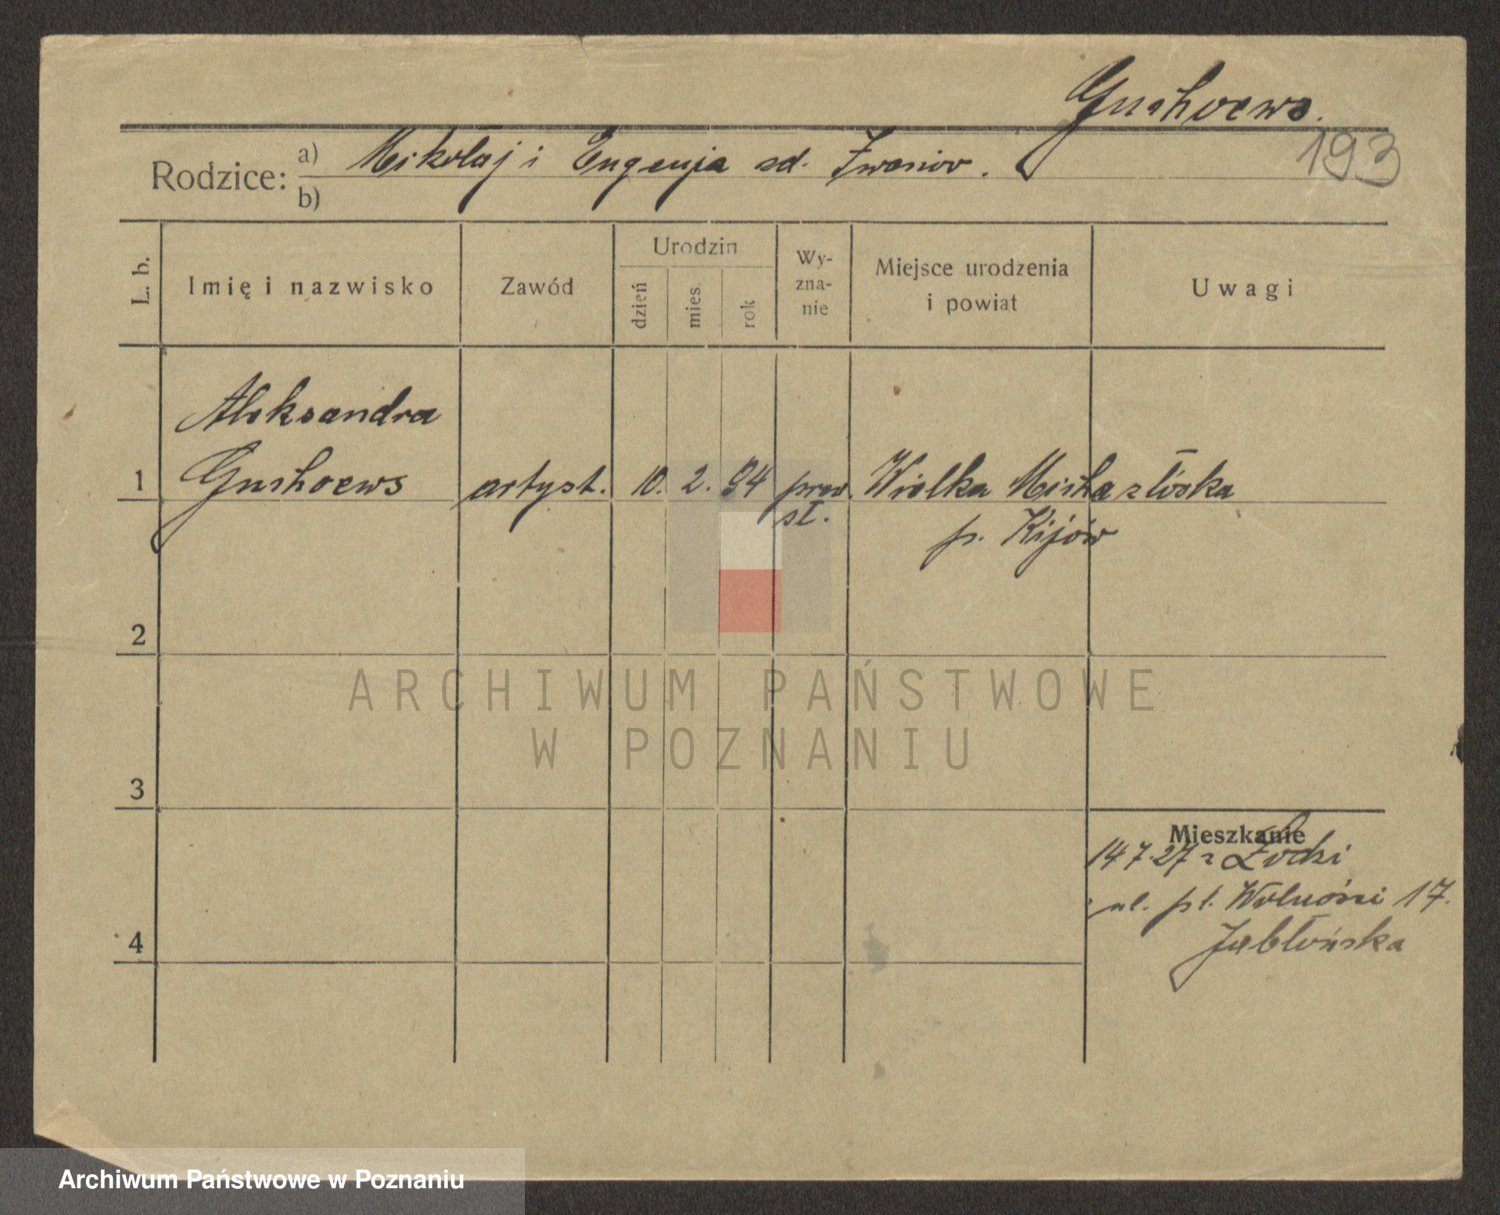 Gushoews.
193
Rodzice: a) Mikołaj i Eugenja zd. Iwaniow.
b)
L. b. Imię i nazwisko Zawód Urodzin dzień mies. rok Wy-zna-nie Miejsce urodzenia i powiat Uwagi
Aleksandra
1 Gushoews artyst. 10. 2. 94 praw. Wielka
sł. p. Kijów
2
ARCHIWUM PAŃSTWOWE
W POZNANIU
3
Mieszkanie
14 7 27 z Łodzi
4 ul. pl. Wolności 17.
Jabłońska
Archiwum Państwowe w Poznaniu